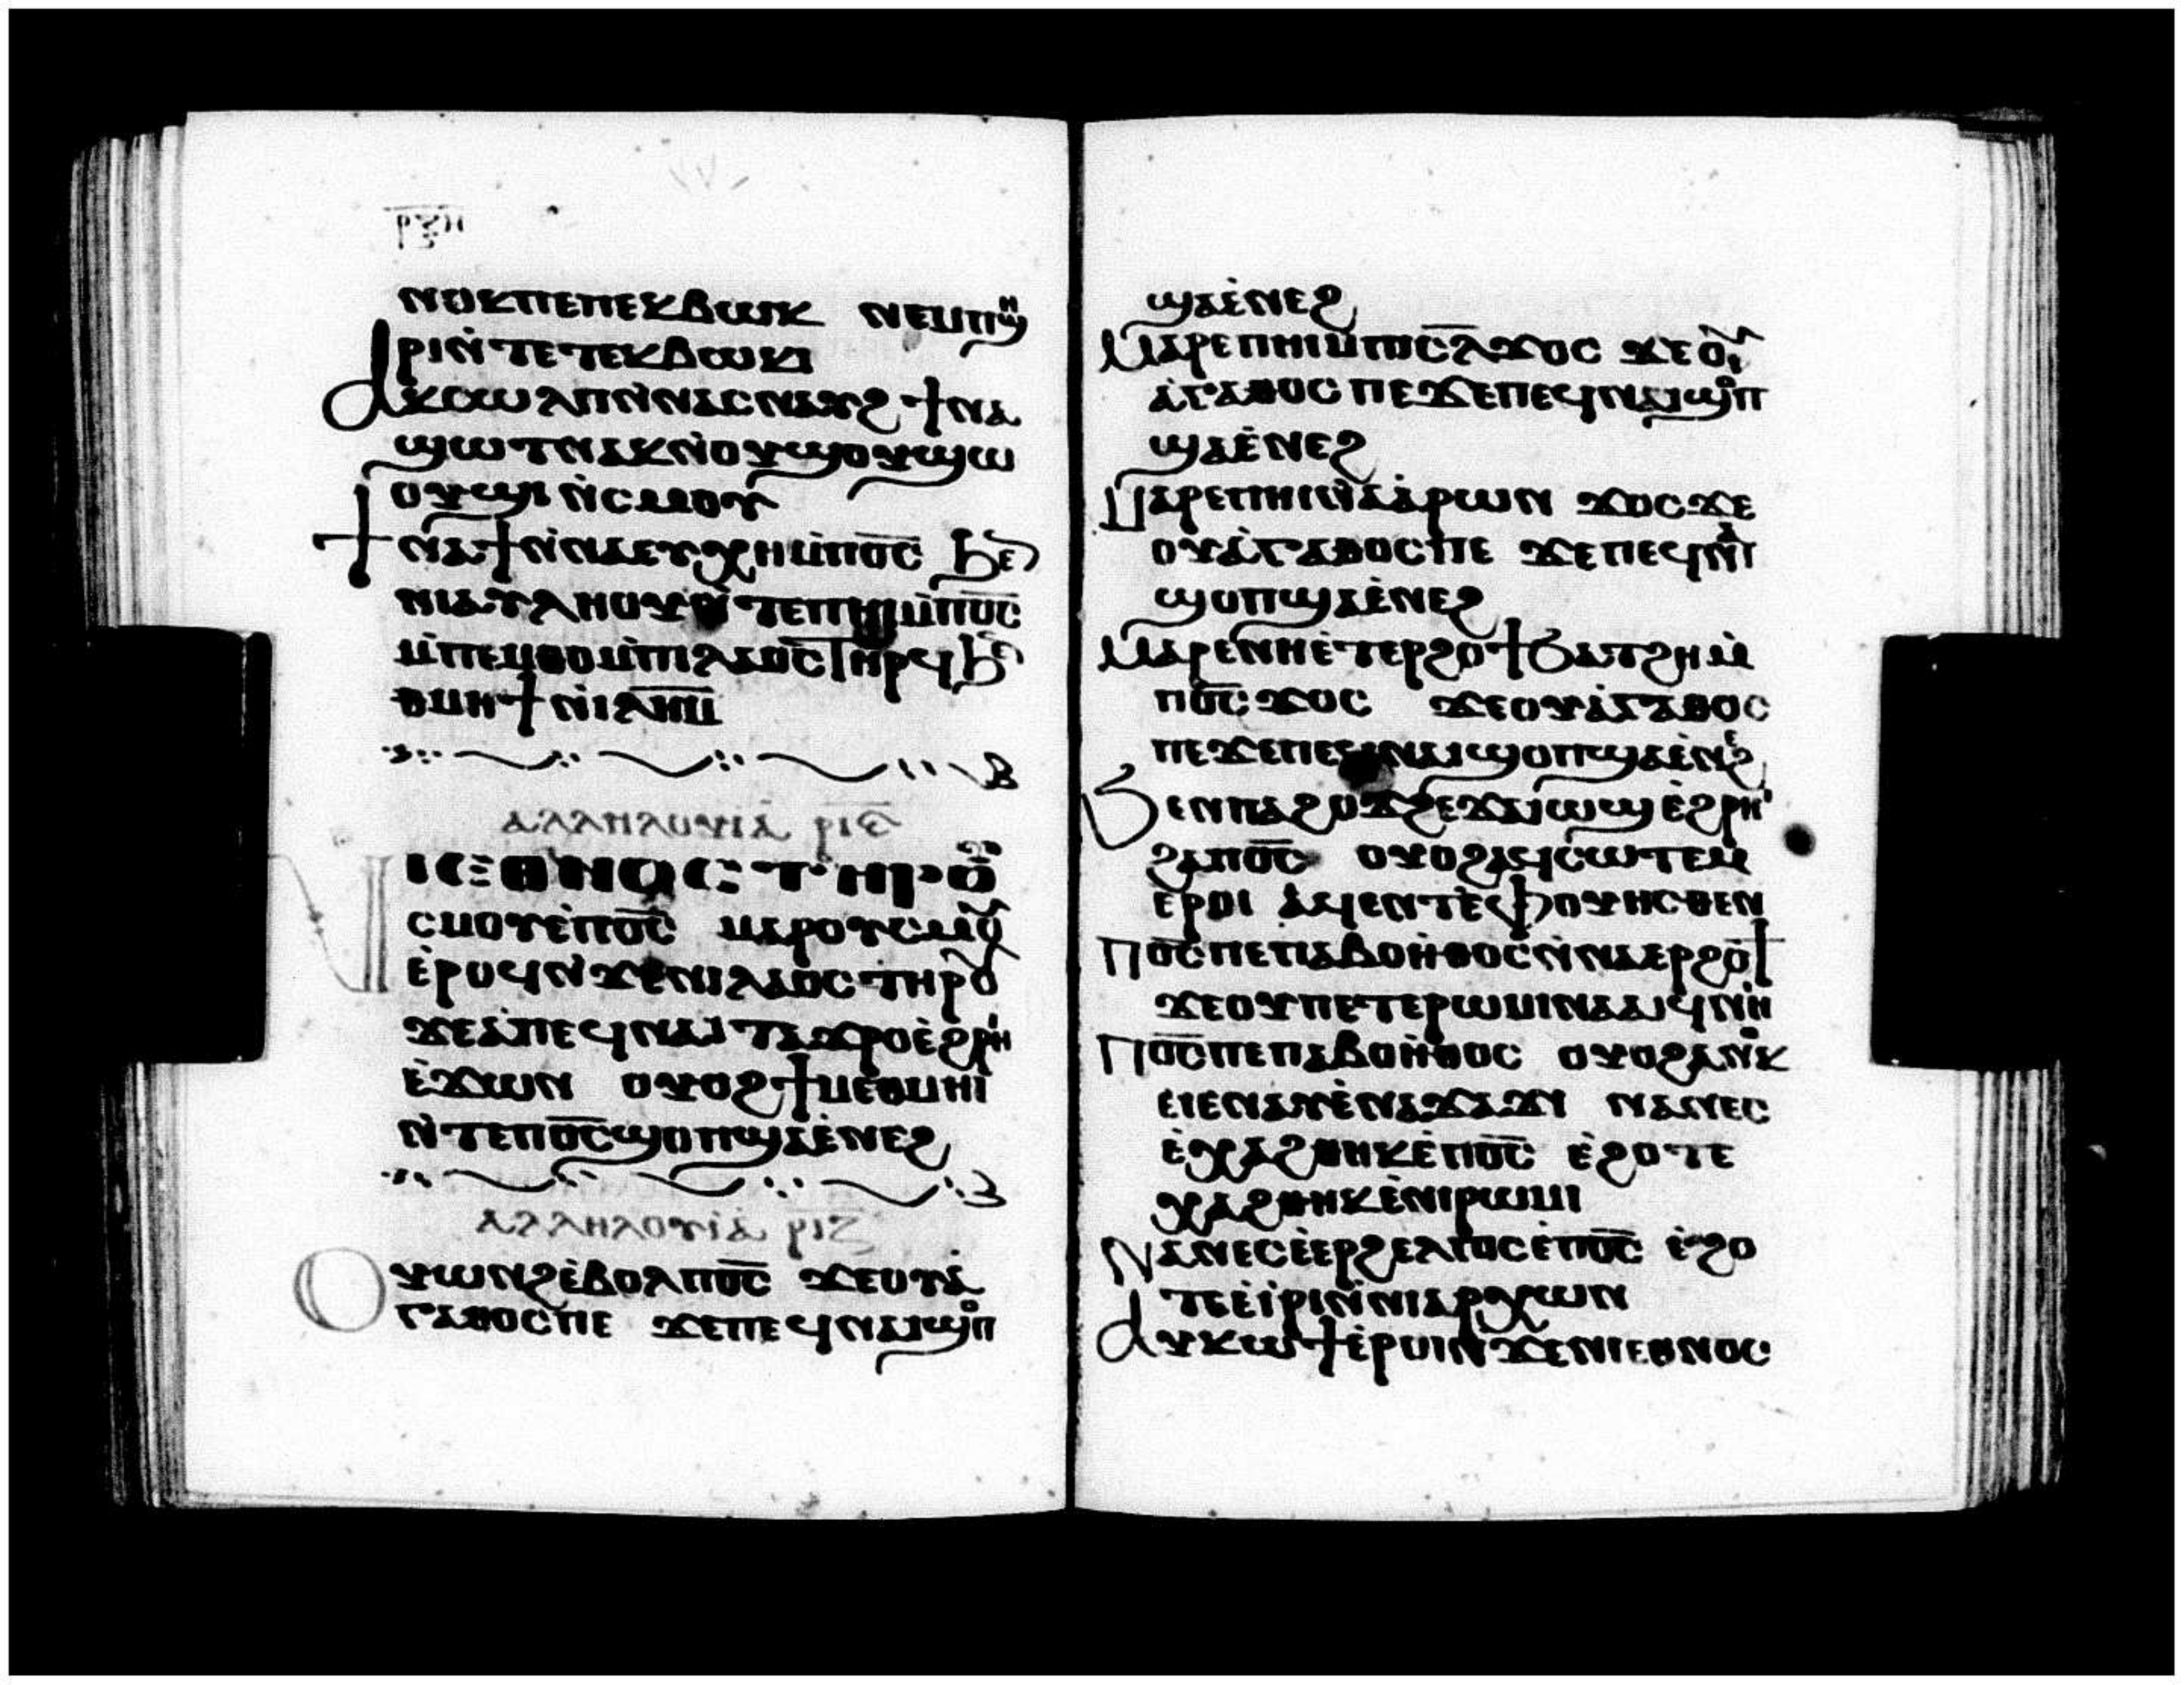 ⲣⲝⲏ
ⲛⲟⲕⲡⲉⲡⲉⲕⲃⲱⲕ ⲛⲉⲙⲡϣⲏ
ⲣⲓⲛ̀ⲧⲉⲧⲉⲕⲃⲱⲕⲓ
ⲁⲕⲥⲱⲗⲡⲛ̀ⲛⲁⲥⲛⲁⲩϩ ϯⲛⲁ
ϣⲱⲧⲛⲁⲕⲛ̀ⲟⲩϣⲟⲩϣⲱ
ⲟⲩϣⲓ ⲛ̀ⲥⲙⲟⲩ
ϯⲛⲁϯⲛ̀ⲛⲁⲉⲩⲭⲏⲙ̀ⲡⲟ̅ⲥ̅ ϧⲉ
ⲛⲓⲁⲩⲗⲏⲟⲩⲛ̀ⲧⲉⲡⲏⲓⲙ̀ⲡⲟ̅ⲥ̅
ⲙ̀ⲡⲉⲙⲑⲟⲙ̀ⲡⲓⲗⲁⲟⲥⲧⲏⲣϥ ϧⲉ
ⲑⲙⲏϯ ⲛ̀ⲓⲗ̅ⲏ̅ⲙ̅
ⲁⲗⲗⲏⲗⲟⲩⲓⲁ̀ ⲣⲓⲋ
ⲛⲓⲉⲑⲛⲟⲥ ⲧⲏⲣⲟⲩ
ⲥⲙⲟⲩⲉ̀ⲡⲟ̅ⲥ̅ ⲙⲁⲣⲟⲩⲥⲙⲟⲩ
ⲉ̀ⲣⲟϥⲛ̀ϫⲉⲛⲓⲗⲁⲟⲥ ⲧⲏⲣⲟⲩ
ϫⲉⲁ̀ⲡⲉϥⲛⲁⲓ ⲧⲁϫⲣⲟⲉ̀ϩⲣⲏⲓ
ⲉ̀ϫⲱⲛ ⲟⲩⲟϩϯⲙⲉⲑⲙⲏⲓ
ⲛ̀ⲧⲉⲡⲟ̅ⲥ̅ϣⲟⲡϣⲁⲉ̀ⲛⲉϩ
ⲁⲗⲗⲏⲗⲟⲩⲓⲁ̀ ⲣⲓⲍ
ⲟⲩⲱⲛϩⲉ̀ⲃⲟⲗⲡⲟ̅ⲥ̅ ϫⲉⲟⲩⲁ̀
ⲅⲁⲑⲟⲥⲡⲉ ϫⲉⲡⲉϥⲛⲁⲓϣⲟⲡ
ϣⲁⲉ̀ⲛⲉϩ
ⲙⲁⲣⲉⲡⲏⲓⲙ̀ⲡⲓⲥ̅ⲗ̅ϫⲟⲥ ϫⲉⲟⲩ
ⲁ̀ⲅⲁⲑⲟⲥ ⲡⲉϫⲉⲡⲉϥⲛⲁⲓϣⲟⲡ
ϣⲁⲉ̀ⲛⲉϩ
ⲙⲁⲣⲉⲡⲏⲓⲛ̀ⲁⲁ̀ⲣⲱⲛ ϫⲟⲥϫⲉ
ⲟⲩⲁ̀ⲅⲁⲑⲟⲥⲡⲉ ϫⲉⲡⲉϥⲛⲁⲓ
ϣⲟⲡϣⲁⲉ̀ⲛⲉϩ
ⲙⲁⲣⲉⲛⲏⲉ̀ⲧⲉⲣϩⲟϯϧⲁⲧϩⲏⲙ̀
ⲡⲟ̅ⲥ̅ ϫⲟⲥ ϫⲉⲟⲩⲁ̀ⲅⲁⲑⲟⲥ
ⲡⲉϫⲉⲡⲉϥⲛⲁⲓϣⲟⲡϣⲁⲉ̀ⲛⲉϩ
ϧⲉⲛⲡⲁϩⲟϫϩⲉϫⲁⲓⲱϣ ⲉ̀ϩⲣⲏⲓ
ϩⲁⲡⲟ̅ⲥ̅ ⲟⲩⲟϩⲁϥⲥⲱⲧⲉⲙ
ⲉ̀ⲣⲟⲓ ⲁ̀ϥⲉⲛⲧⲉ̀ⲫⲟⲩⲏⲥⲑⲉⲛ
ⲡⲟ̅ⲥ̅ⲡⲉⲡⲁⲃⲟⲏ̀ⲑⲟⲥⲛ̀ⲛⲁⲉⲣϩⲟϯ
ϫⲉⲟⲩⲡⲉⲧⲉⲣⲱⲙⲓⲛⲁⲁⲓϥⲛⲏⲓ
ⲡⲟ̅ⲥ̅ⲡⲉⲡⲁⲃⲟⲏ̀ⲑⲟⲥ ⲟⲩⲟϩⲁⲛⲟⲕ
ⲉⲓⲉⲛⲁⲩⲉ̀ⲛⲁϫⲁϫⲓ ⲛⲁⲛⲉⲥ
ⲉ̀ⲭⲁϩⲑⲏⲕⲉ̀ⲡⲟ̅ⲥ̅ ⲉ̀ϩⲟⲧⲉ
ⲭⲁϩⲑⲏⲕⲉ̀ⲛⲓⲣⲱⲙⲓ
ⲛⲁⲛⲉⲥⲉ̀ⲉⲣϩⲉⲗⲡⲓⲥⲉ̀ⲡⲟ̅ⲥ̅ ⲉ̀ϩⲟ
ⲧⲉⲉ̀ⲓ̀ⲣⲓⲛ̀ⲛⲓⲁⲣⲭⲱⲛ
ⲁⲩⲕⲱϯⲉ̀ⲣⲟⲓⲛ̀ϫⲉⲛⲓⲉⲑⲛⲟⲥ